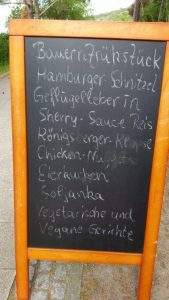 Bauernfrühstück
Hamburger Schnitzel
Geflügelleber in
Sherry-Sauce Reis
Königsberger-Klopse
Chicken-Nuggets
Eierau
Soljanka
Vegetarische und
Vegane Gerichte